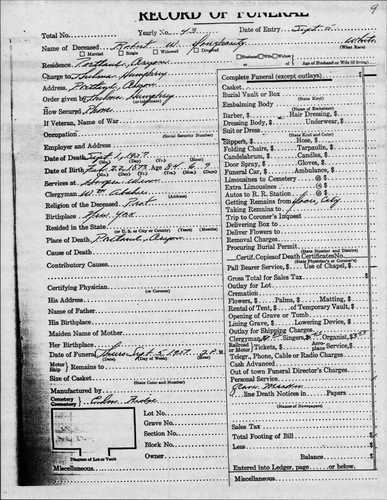 9
RECORD OF FUNERAL
Total No. Yearly No. 43 Date of Entry Sept. 5
Name of Deceased Robert W. White
(What Race)
Married Single Widowed Divorced Husband Wife Widow
or Age of Husband or Wife (if living)
Residence Portland, Oregon
Charge to Humphrey
Address Portland, Oregon
Order given by Humphrey
How Secured Phone
If Veteran, Name of War
Occupation
(Social Security Number)
Employer and Address
Date of Death Sept. 1, 1957
(Mo.) (Day) (Year) (Hour)
Date of Birth Feb. 22, 1873 Age 84-6-9
(Mo.) (Day) (Year) (Yrs.) (Mo.) (Days)
Services at
Clergyman
(Address)
Religion of the Deceased Prot.
Birthplace New York
Resided in the State
(or U. S. or City or County) (Years) (Months)
Place of Death Portland, Oregon
Cause of Death
Contributory Causes
Certifying Physician
(or Coroner)
His Address
Name of Father
His Birthplace
Maiden Name of Mother
Her Birthplace
Date of Funeral Thurs Sept. 5, 1957. 2 P.M.
(Date) (Day of Week) (Hour)
Motor Ship Remains to
Size of Casket
(State Color and Number)
Manufactured by
Cemetery
Crematory
Lot No.
Grave No.
Section No.
Block No.
Owner
Diagram of Lot or Vault
Miscellaneous
Complete Funeral (except outlays)
Casket
Burial Vault or Box
(State Kind)
Embalming Body
(Name of Embalmer)
Barber, $ Hair Dressing, $
Dressing Body, $ Underwear, $
Suit or Dress
(State Kind and Color)
Slippers, $ Hose, $
Folding Chairs, $ Tarpaulin, $
Candelabrum, $ Candles, $
Door Spray, $ Gloves, $
Funeral Car, $ Ambulance, $
Limousines to Cemetery @ $
Extra Limousines @ $
Autos to R. R. Station @ $
Getting Remains from City
Taking Remains to
Trip to Coroner's Inquest
Delivering Box to
Deliver Flowers to
Removal Charges
Procuring Burial Permit
(State Number and District)
Certif. Copies of Death Certificates No.
(State Physician's or Coroner's)
Pall Bearer Service, $ Use of Chapel, $
Gross Total for Sales Tax
Outlay for Lot
Cremation
Flowers, $ Palms, $ Matting, $
Rental of Tent, $ of Temporary Vault, $
Opening of Grave or Tomb
Lining Grave, $ Lowering Device, $
Outlay for Shipping Charges
Clergyman $ Singers, $ Organist, $
Railroad or Motor Tickets, $ Plane Service, $
Telegr., Phone, Cable or Radio Charges
Cash Advanced
Out of town Funeral Director's Charges
Personal Service
line Death Notices in Papers
(Names of Newspapers)
Sales Tax
Total Footing of Bill
Less
Balance
Entered into Ledger, page or below
Miscellaneous